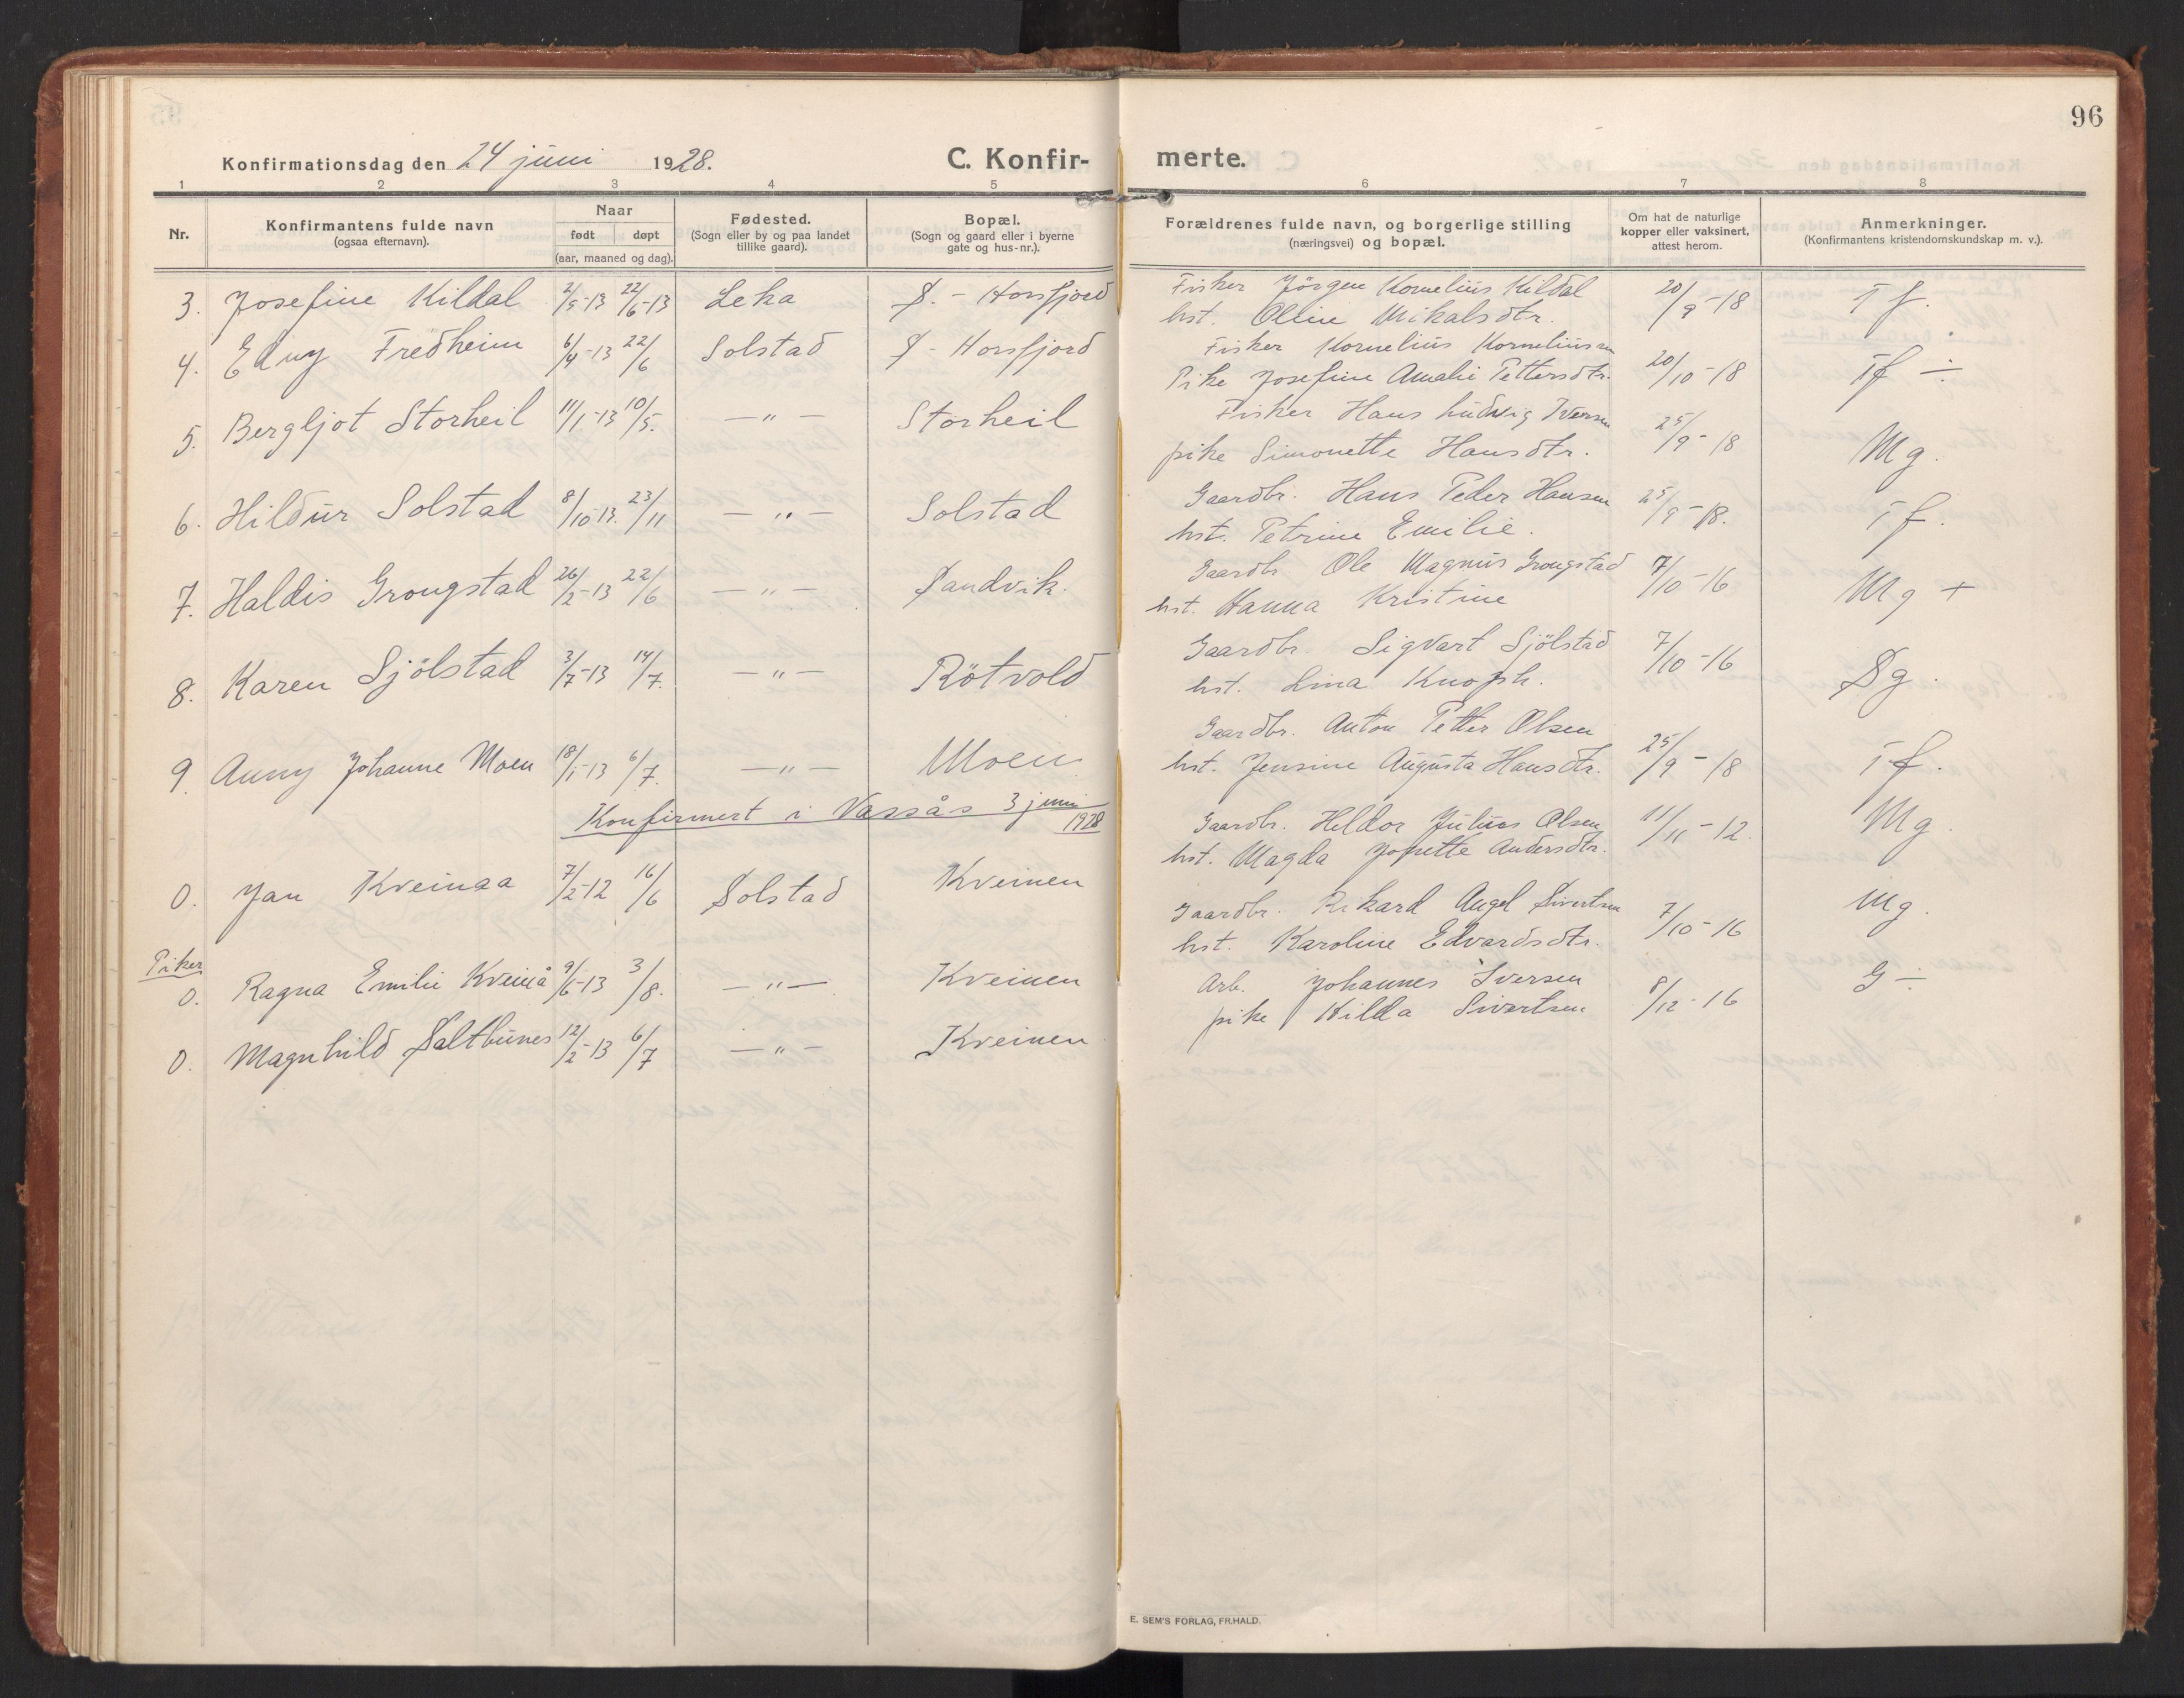 96
Konfirmationsdag den 24 juni 1928. C. Konfirmerte.
1 2 3 4 5 6 7 8
Nr. Konfirmantens fulde navn (ogsaa efternavn). Naar født døpt (aar, maaned og dag). Fødested. (Sogn eller by og paa landet tillike gaard). Bopæl. (Sogn og gaard eller i byerne gate og hus-nr.). Forældrenes fulde navn, og borgerlige stilling (næringsvei) og bopæl. Om hat de naturlige kopper eller vaksinert, attest herom. Anmerkninger. (Konfirmantens kristendomskundskap m. v.).
3. Josefine Kildal 2/5-13 22/6-13 Leka S.- Horsfjord Fisker Jörgen Kornelius Kildal 20/9-18 Tf.
hst. Oline Mikalsdtr.
4. Edny Fredheim 6/4-13 22/6 Solstad S - Horsfjord Fisker Kornelius Korneliussen 20/10-18 Tf ÷
Pike Josefine Amalie Pettersdtr.
5. Bergljot Storheil 11/1-13 10/5. — " — Storheil Fisker Hans Ludvig Iversen 25/9-18 Mg.
pike Simonette Hansdtr.
6. Hildur Solstad 8/10-13. 23/11 — " — Solstad Gaardbr. Hans Peder Hansen 25/9-18. Tf.
hst. Petrine Emilie.
7. Haldis Grongstad 26/2-13 22/6 — " — Sandvik. Gaardbr Ole Magnus Grongstad 7/10-16 Mg +
hst. Hanna Kristine
8. Karen Sjölstad 3/7-13 14/7. — " — Rötvold Gaardbr. Sigvart Sjölstad 7/10-16 Sg.
hst. Lina Knoph.
9. Anny Johanne Moen 18/1-13 6/7. — " — Moen Gaardbr. Anton Petter Olsen 25/9-18 Tf.
hst. Jensine Augusta Hansdtr.
Konfirmert i Vassås 3 juni 1928
0. Jan Kveinaa 7/2-12 16/6 Solstad Kveinen Gaardbr. Heldor Julius Olsen 11/11-12. Mg.
hst. Magda Jonette Andersdtr.
Piker
0. Ragna Emilie Kveinå 9/6-13 3/8. — " — Kveinen Gaardbr. Rikard Angel Sivertsen 7/10-16 Mg.
hst. Karoline Edvardsdtr.
0. Magnhild Saltbunes 12/2-13 6/7 — " — Kveinen Arb. Johannes Iversen 8/12-16 G ÷
pike Hilda Sivertsen
E. SEM'S FORLAG, FR.HALD.